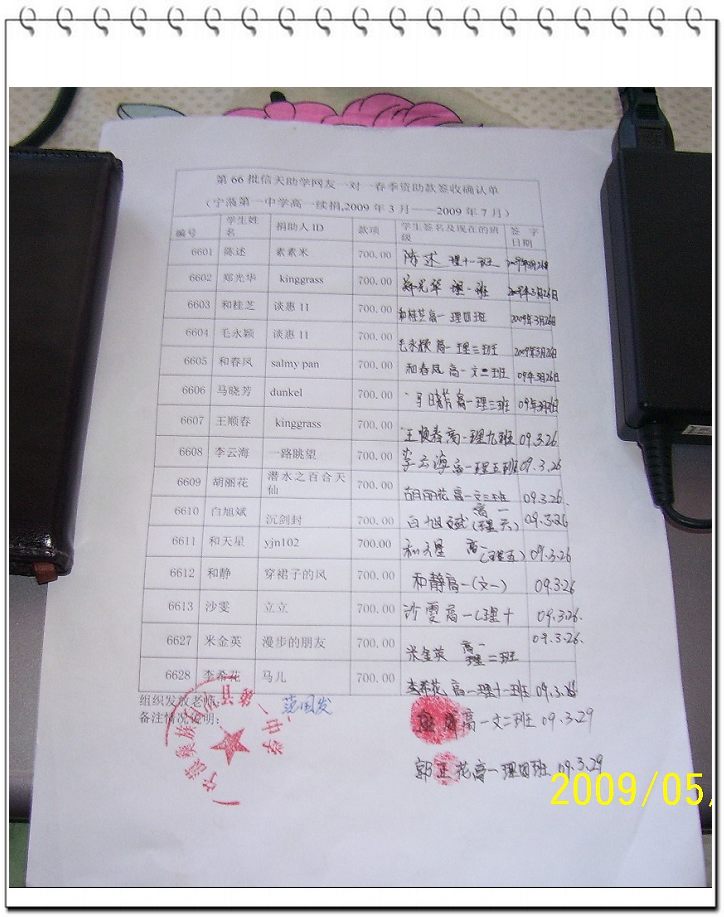 第66批信天助学网友一对一春季资助款签收确认单
（宁蒗第一中学高一续捐,2009 年 3 月——2009 年 7 月）
编号 学生姓名 捐助人 ID 款项 学生签名及现在的班级 签 字 日期
6601 陈述 素素米 700.00 陈述 理十一班 2009年3月26日
6602 郑光华 kinggrass 700.00 郑光华 理一班 2009年3月26日
6603 和桂芝 谈惠 11 700.00 和桂芝 高一 理四班 2009年3月26日
6604 毛永颖 谈惠 11 700.00 毛永颖 高一 理三班 2009年3月26日
6605 和春凤 salmy pan 700.00 和春凤 高一 文二班 09年3月26日
6606 马晓芳 dunkel 700.00 马晓芳 高一 理三班 09年3月26日
6607 王顺春 kinggrass 700.00 王顺春 高一 理九班 09.3.26
6608 李云海 一路眺望 700.00 李云海 高一 理五班 09.3.26
6609 胡丽花 潜水之百合天仙 700.00 胡丽花 高一 文三班 09.3.26.
6610 白旭斌 沉剑封 700.00 白旭斌 高一（理六） 09.3.26
6611 和天星 yjn102 700.00 和天星 高一（理五） 09.3.26
6612 和静 穿裙子的风 700.00 和静 高一（文一） 09.3.26
6613 沙雯 立立 700.00 沙雯 高一（理十 09.3.26.
6627 米金英 漫步的朋友 700.00 米金英 高一 理二班 09.3.26.
6628 李希花 马儿 700.00 李希花 高一 理十一班 09.3.26
组织发放老师： 范国发
备注情况说明：
高一文二班 09.3.29
郭正花 高一 理四班 09.3.29
2009/05